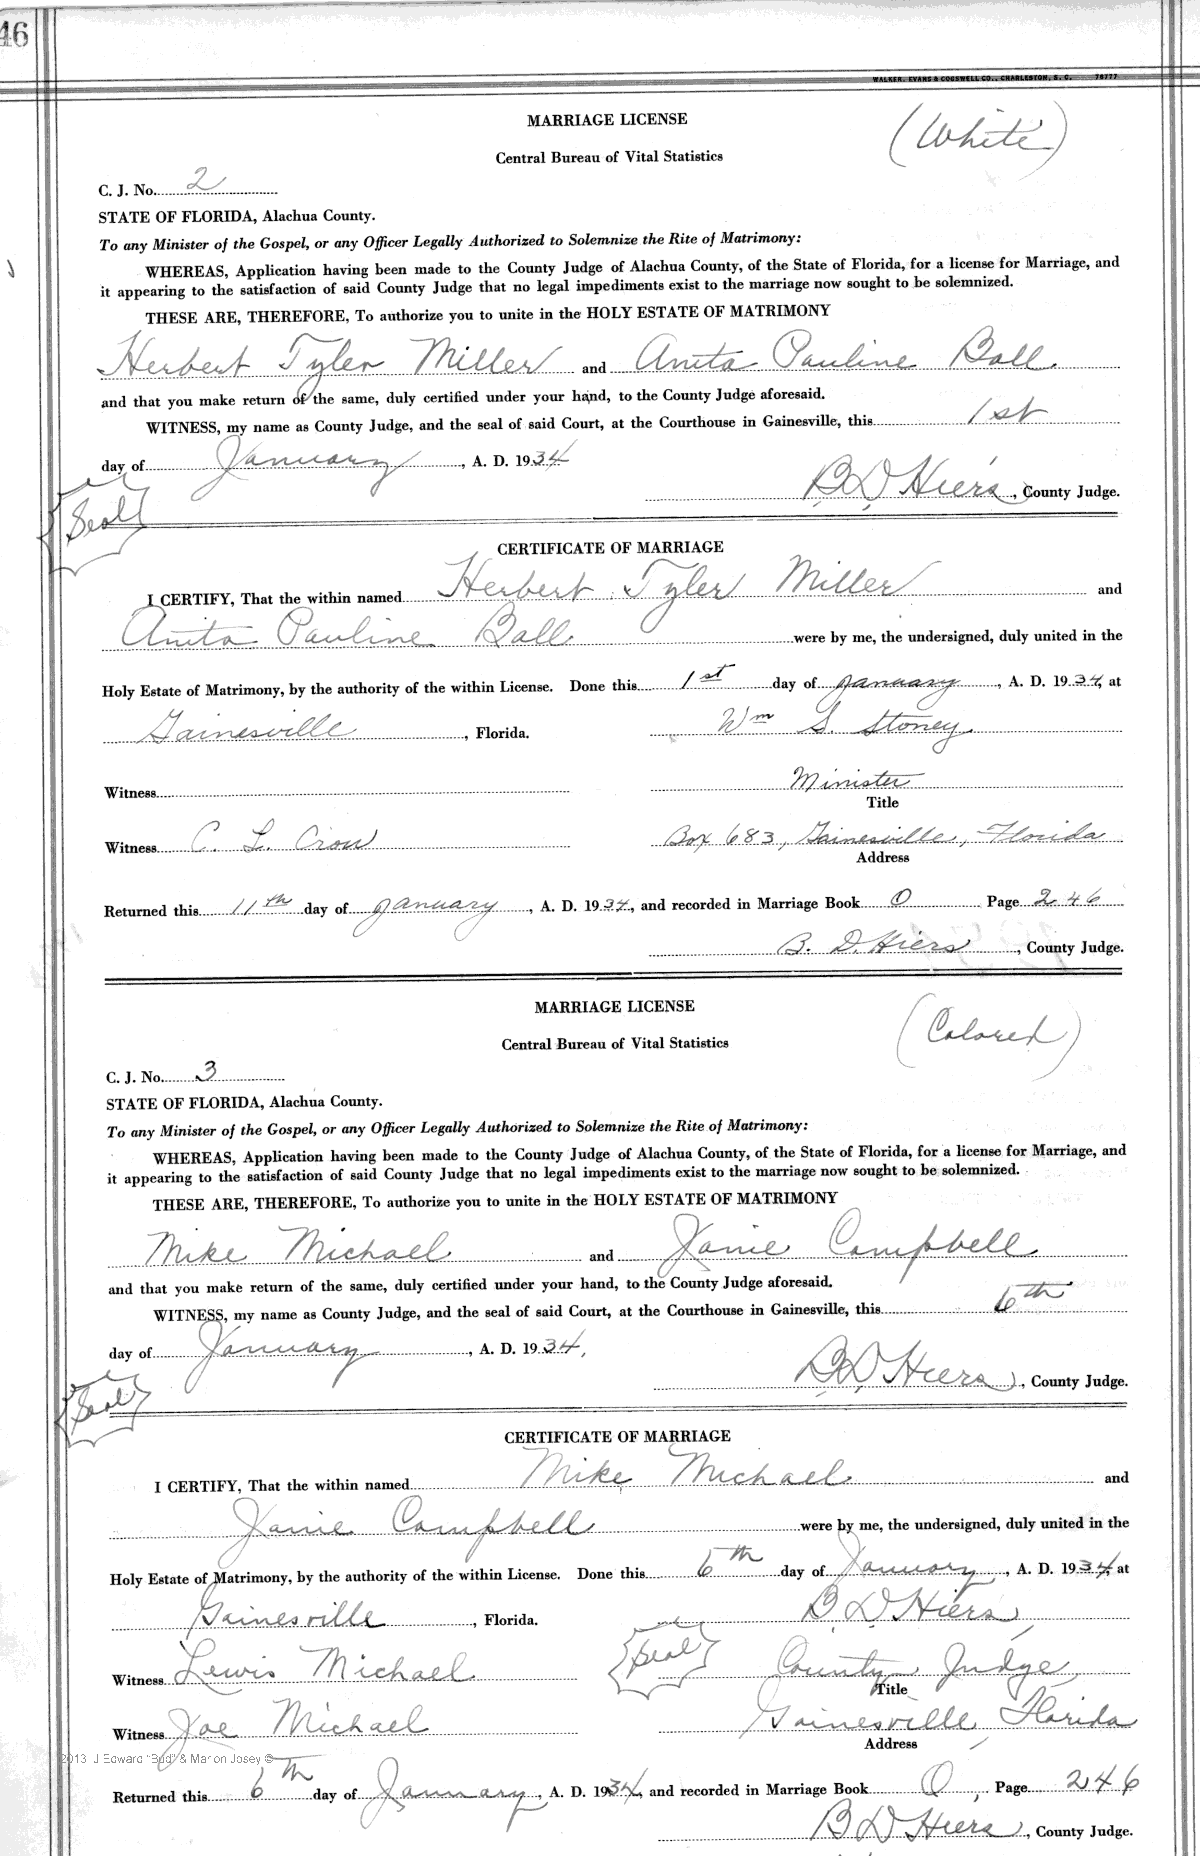 46
WALKER, EVANS & COGSWELL CO., CHARLESTON, S. C. 78777
MARRIAGE LICENSE
(White)
Central Bureau of Vital Statistics
C. J. No. 2
STATE OF FLORIDA, Alachua County.
To any Minister of the Gospel, or any Officer Legally Authorized to Solemnize the Rite of Matrimony:
WHEREAS, Application having been made to the County Judge of Alachua County, of the State of Florida, for a license for Marriage, and
it appearing to the satisfaction of said County Judge that no legal impediments exist to the marriage now sought to be solemnized.
THESE ARE, THEREFORE, To authorize you to unite in the HOLY ESTATE OF MATRIMONY
Herbert Tyler Miller and Anita Pauline Ball
and that you make return of the same, duly certified under your hand, to the County Judge aforesaid.
WITNESS, my name as County Judge, and the seal of said Court, at the Courthouse in Gainesville, this 1st
day of January, A. D. 1934
B D Hiers, County Judge.
Seal
CERTIFICATE OF MARRIAGE
I CERTIFY, That the within named Herbert Tyler Miller and
Anita Pauline Ball were by me, the undersigned, duly united in the
Holy Estate of Matrimony, by the authority of the within License. Done this 1st day of January, A. D. 1934, at
Gainesville, Florida. Wm S. Stoney
Witness Minister
Title
Witness C. L. Crow Box 683, Gainesville, Florida
Address
Returned this 11th day of January, A. D. 1934, and recorded in Marriage Book O Page 246
B. D. Hiers, County Judge.
MARRIAGE LICENSE
(Colored)
Central Bureau of Vital Statistics
C. J. No. 3
STATE OF FLORIDA, Alachua County.
To any Minister of the Gospel, or any Officer Legally Authorized to Solemnize the Rite of Matrimony:
WHEREAS, Application having been made to the County Judge of Alachua County, of the State of Florida, for a license for Marriage, and
it appearing to the satisfaction of said County Judge that no legal impediments exist to the marriage now sought to be solemnized.
THESE ARE, THEREFORE, To authorize you to unite in the HOLY ESTATE OF MATRIMONY
Mike Michael and Janie Campbell
and that you make return of the same, duly certified under your hand, to the County Judge aforesaid.
WITNESS, my name as County Judge, and the seal of said Court, at the Courthouse in Gainesville, this 6th
day of January, A. D. 1934,
B D Hiers, County Judge.
Seal
CERTIFICATE OF MARRIAGE
I CERTIFY, That the within named Mike Michael and
Janie Campbell were by me, the undersigned, duly united in the
Holy Estate of Matrimony, by the authority of the within License. Done this 6th day of January, A. D. 1934, at
Gainesville, Florida. B D Hiers
Witness Lewis Michael Seal County Judge
Title
Witness Joe Michael Gainesville, Florida
Address
2013 J Edward "Bud" & Marion Josey ©
Returned this 6th day of January, A. D. 1934, and recorded in Marriage Book O, Page 246
B D Hiers, County Judge.